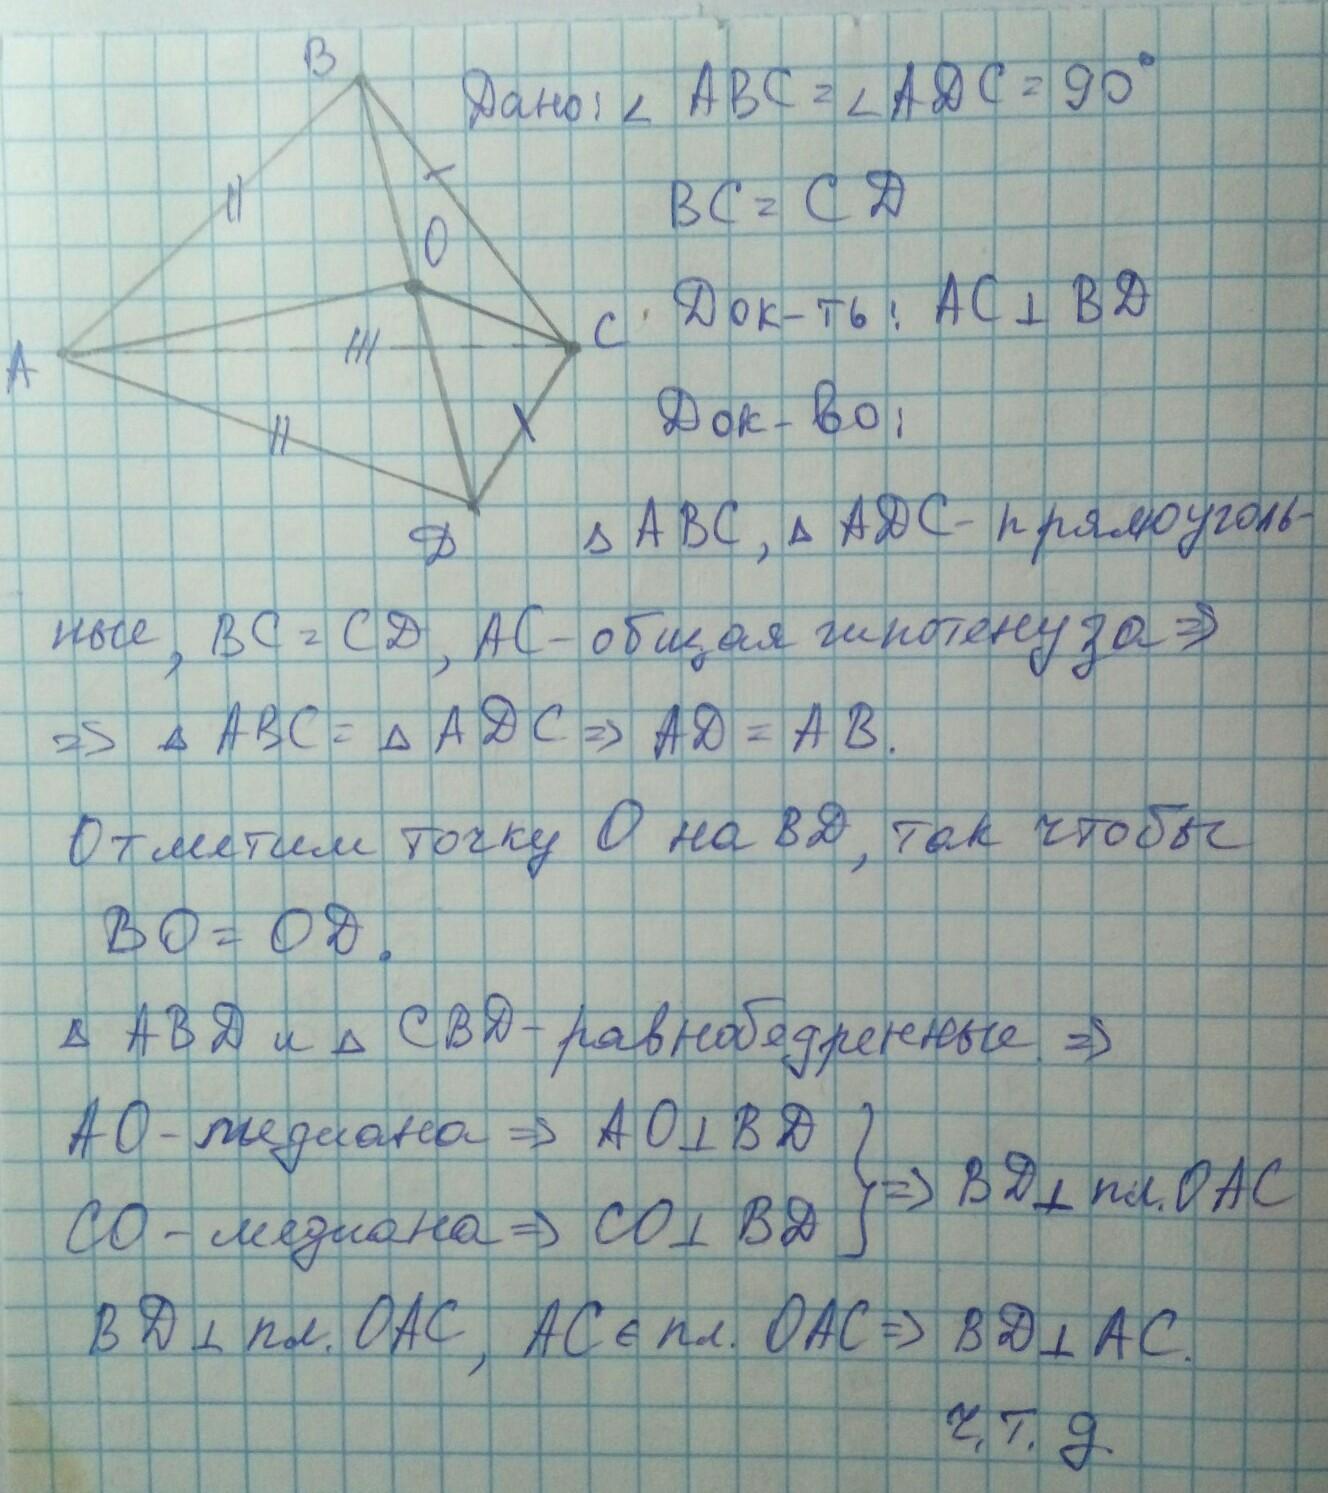 B
Дано: ∠ ABC = ∠ ADC = 90°
BC = CD
O
A
C
Док-ть: AC ⊥ BD
Док-во:
D
Δ ABC, Δ ADC - прямоуголь-
ные, BC = CD, AC - общая гипотенуза ⇒
⇒ Δ ABC = Δ ADC ⇒ AD = AB.
Отметим точку O на BD, так чтобы
BO = OD.
Δ ABD и Δ CBD - равнобедренные ⇒
AO - медиана ⇒ AO ⊥ BD
CO - медиана ⇒ CO ⊥ BD } ⇒ BD ⊥ пл. OAC
BD ⊥ пл. OAC, AC ∈ пл. OAC ⇒ BD ⊥ AC.
Ч.т.д